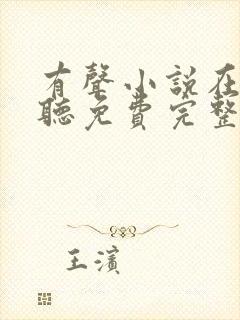 有聲小說在
聽免費完整
王濱